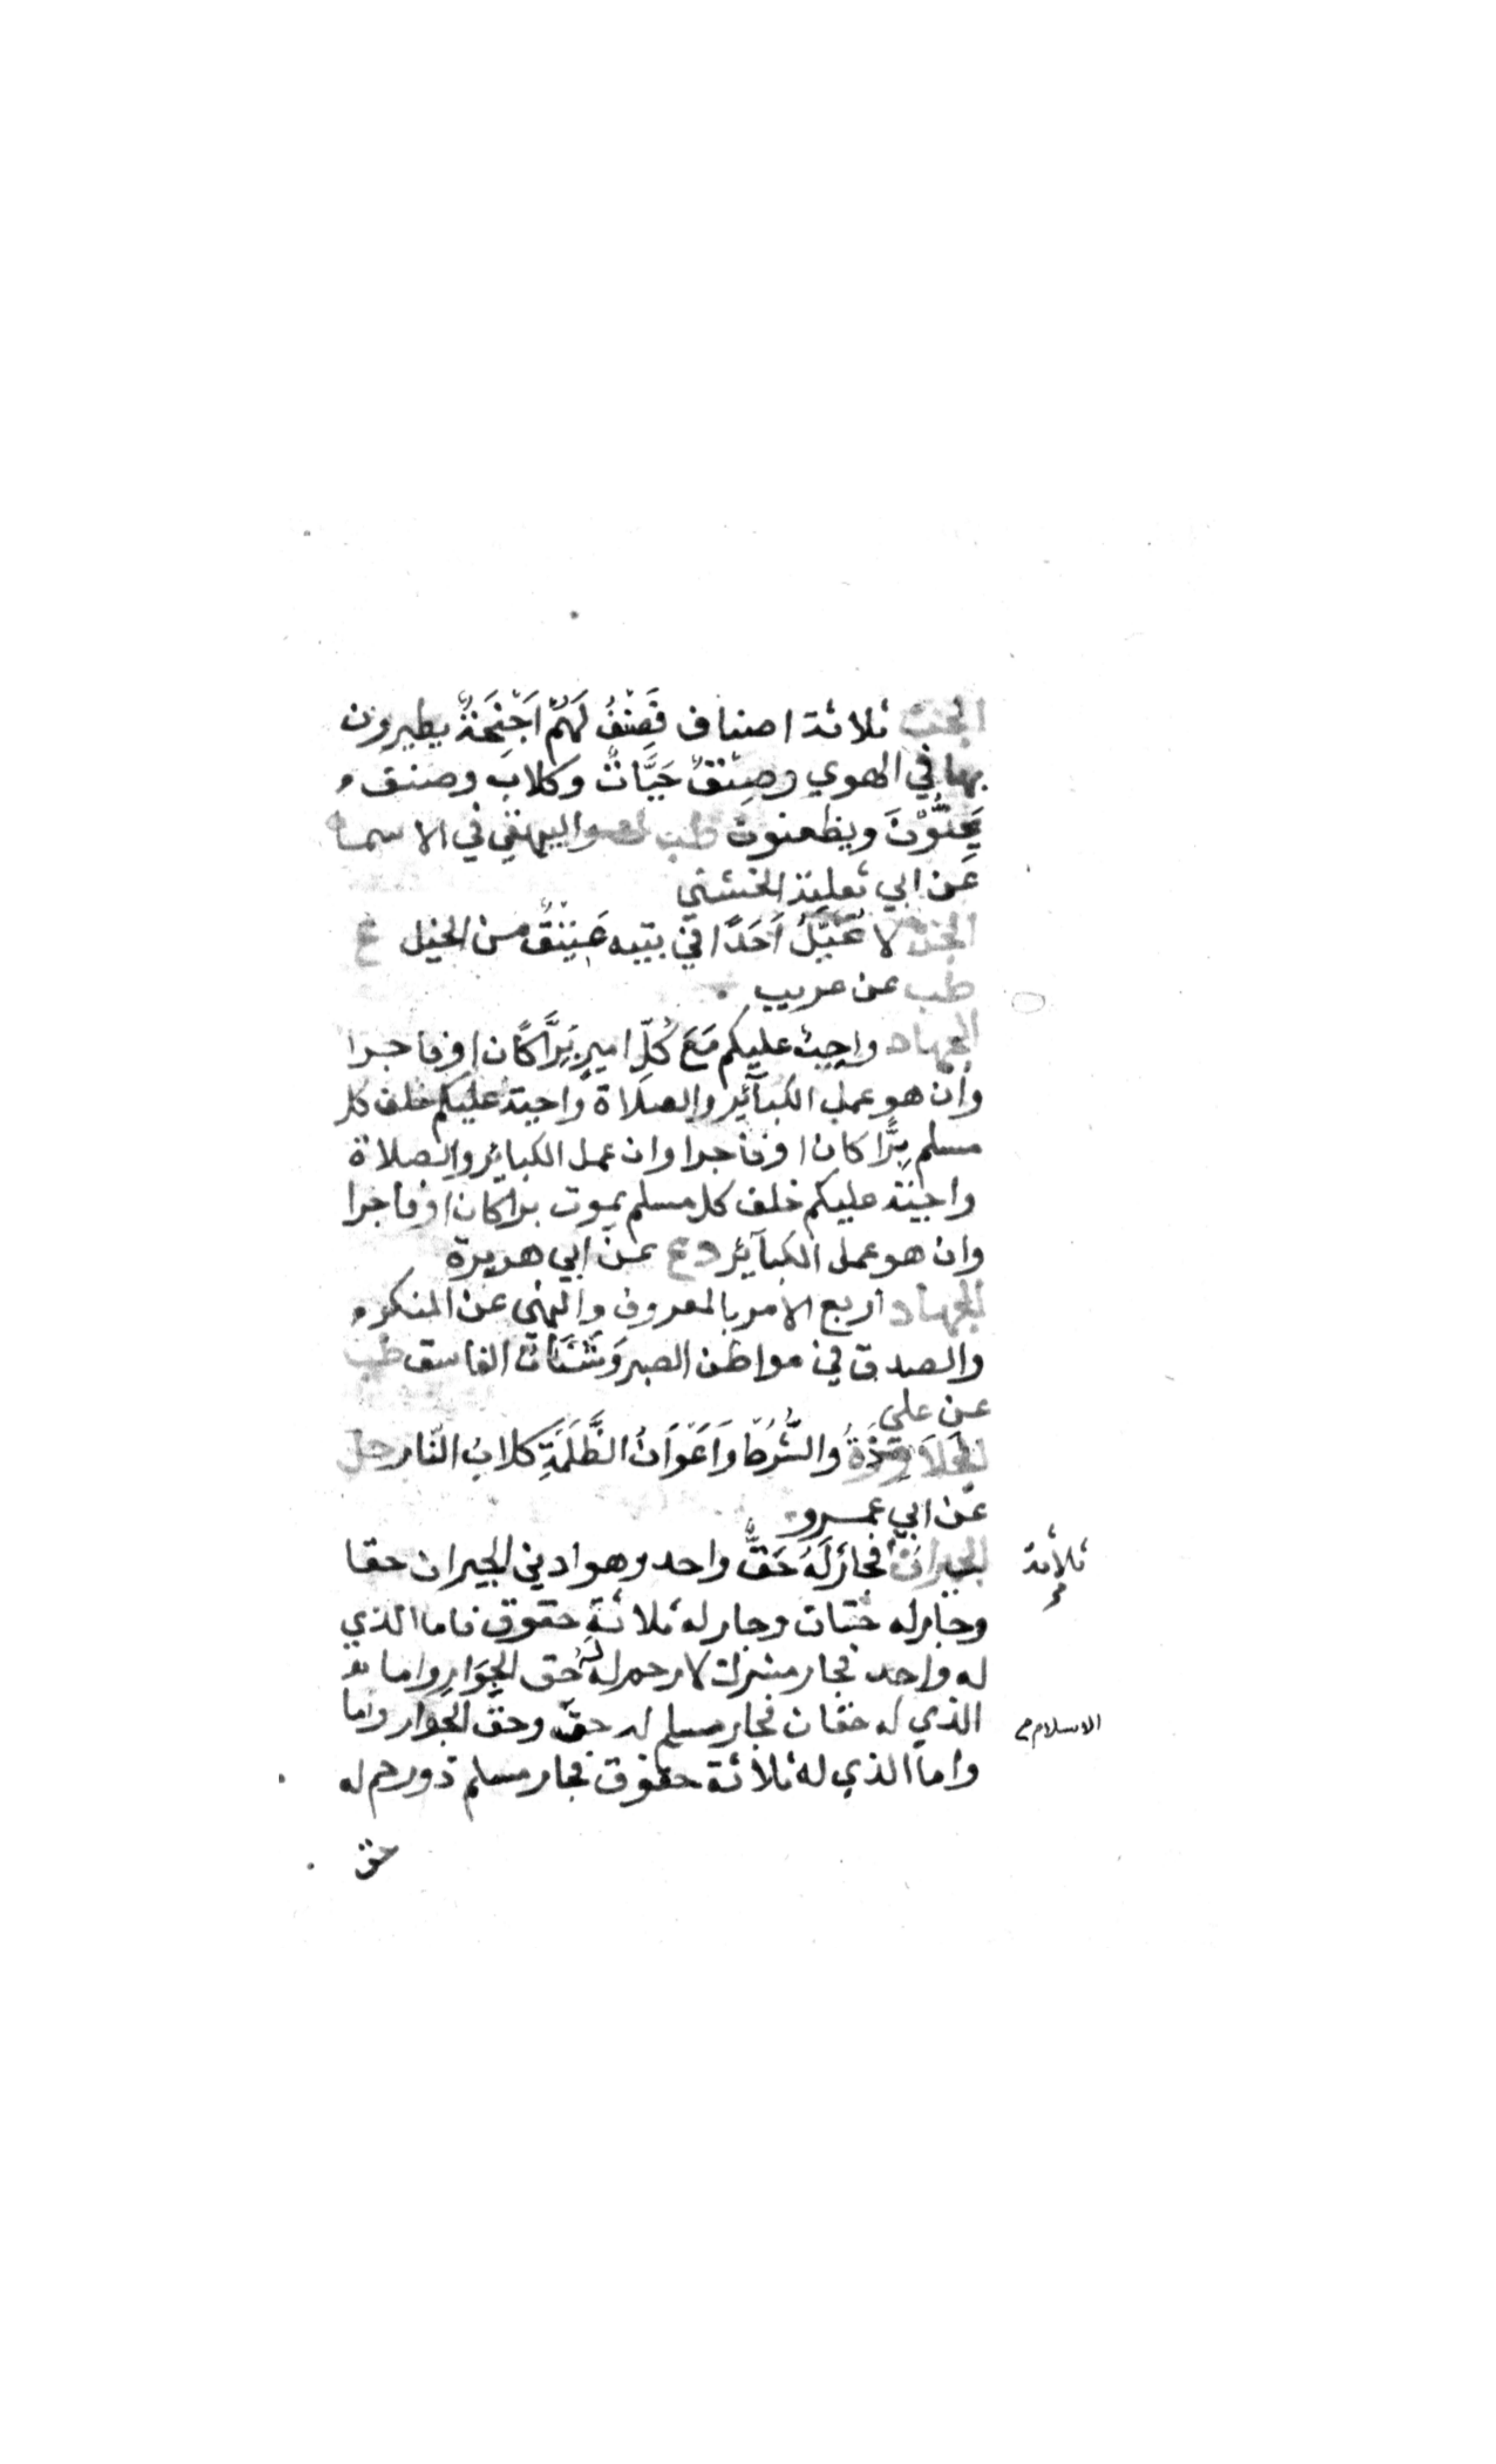 الجن ثلاثة اصناف فَصِنْفٌ لَهُمْ اَجْنِحَةٌ يطيرون
بها في الهوي وصِنْفٌ حَيَّاتٌ وكلابٌ وصنف
يَحِلُّوْنَ ويظعنون طب ك والبيهقي في الاسما
عَن ابي ثعلبة الخشني
الجن لا تُخَبِّلُ اَحَدًا في بيته عَتِيْقٌ من الخيل ع
طب عن عريب
الجهاد واجبٌ عليكم مَعَ كُلِّ اميرٍ بَرًّا كَان اوفاجرا
وان هو عمل الكبآئر والصلاة واجبة عليكم خلف كل
مسلم بِرًّا كان اوفاجرا وان عمل الكبائر والصلاة
واجبة عليكم خلف كل مسلم يموت براكان اوفاجرا
وان هو عمل الكبآئر د ع عن ابي هريرة
الجهاد اربع الامر بالمعروف والنهي عن المنكر
والصدق في مواطن الصبر وَشَنَآنُ الفاسق طب
عن علي
الجَلَاوِزَةُ والشُّرَطُ وَاَعْوَانُ الظَّلَمَةِ كلابُ النّار حل
عَن ابي عمرو
الجيرانُ فجارٌ لَهُ حَقٌّ واحد وهو ادني الجيران حقا
ثلاثة
وجارله حقان وجار له ثلاثةِ حقوق فاما الذي
له واحد فجار مشرك لا رحم له لَهُ حق الجِوَارِ واما
الذي له حقان فجار مسلم له حق وحق الجوار واما
الاسلام
واما الذي له ثلاثة حقوق فجار مسلم ذو رحم له
حق